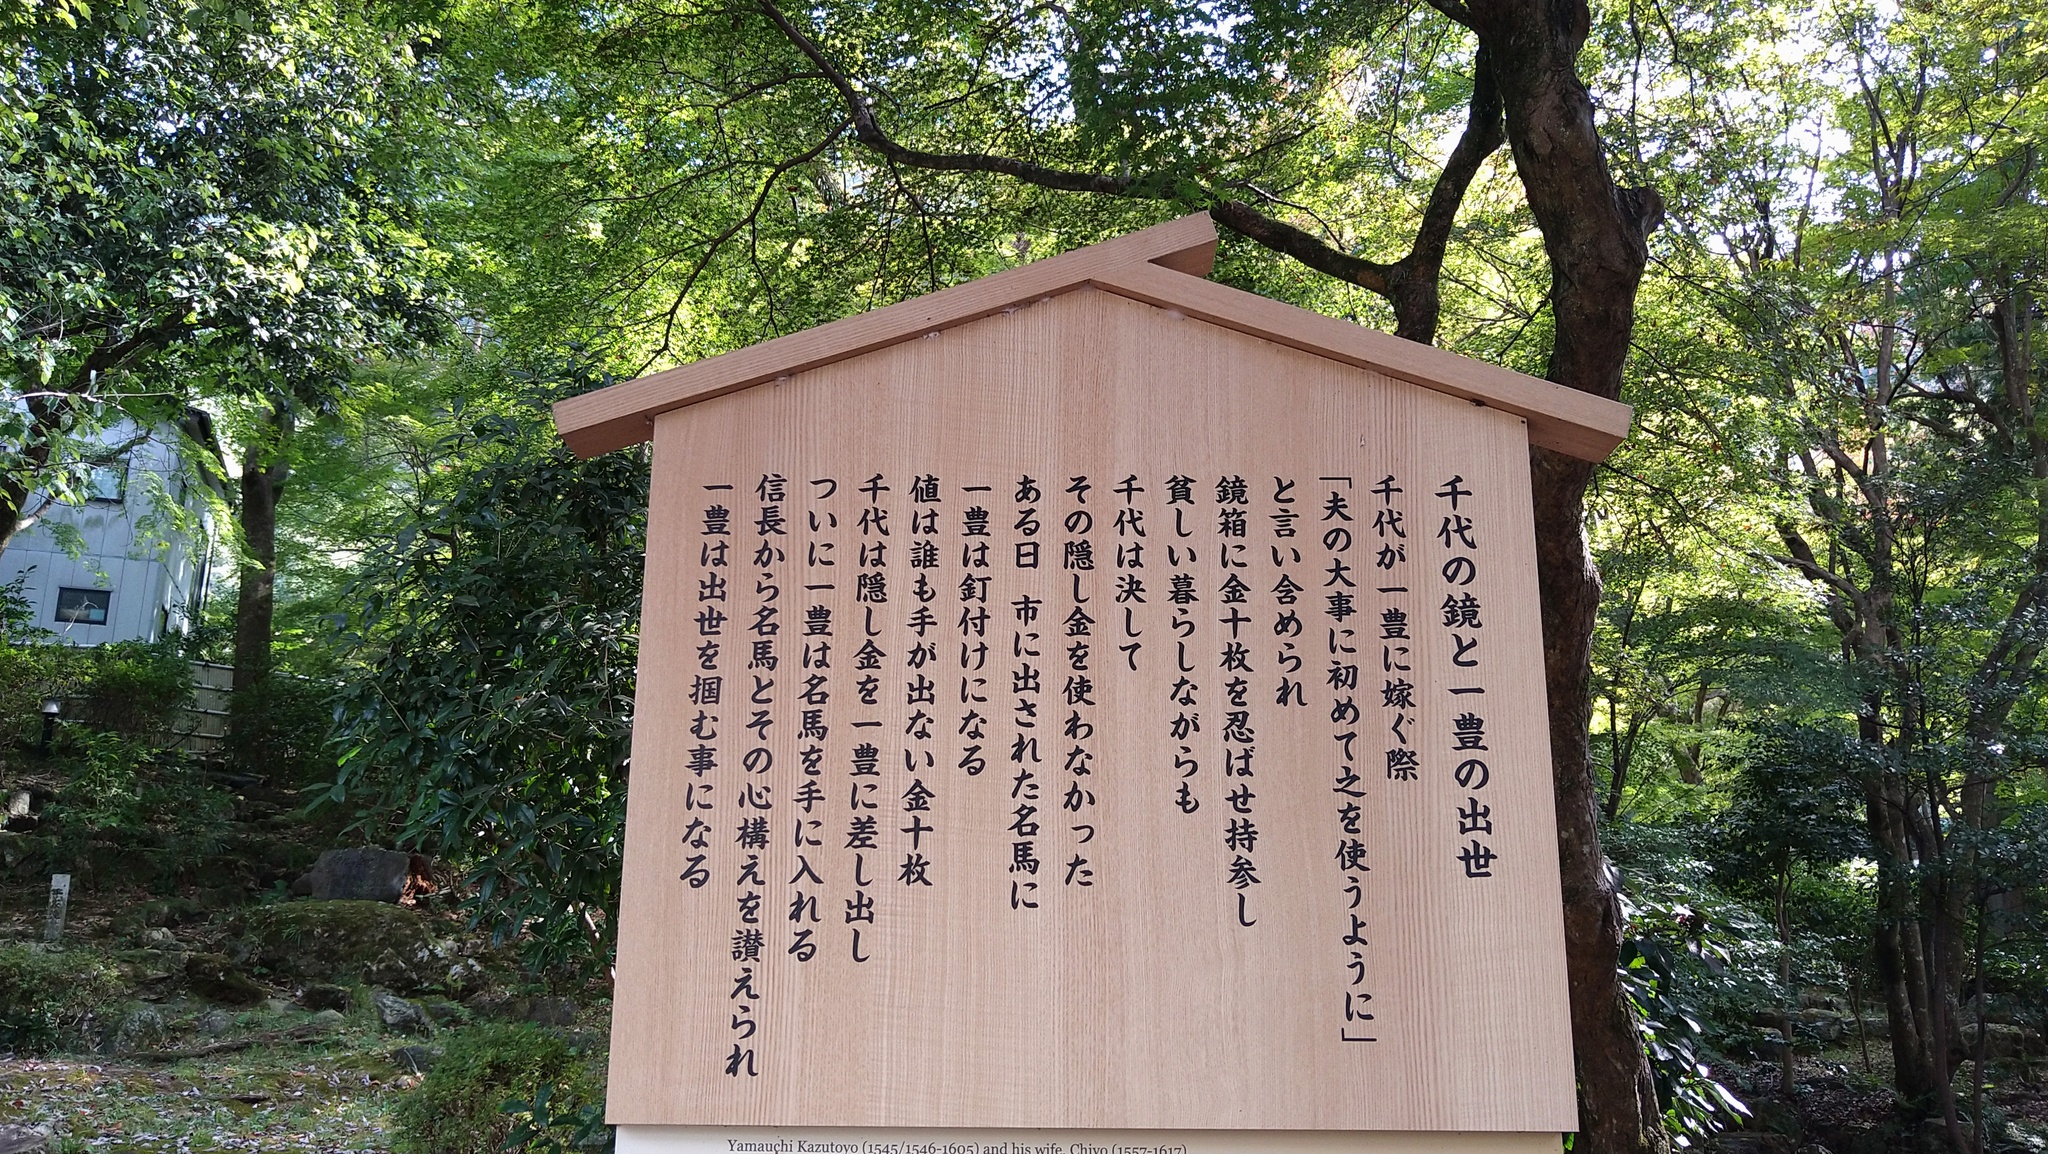 千代の鏡と一豊の出世
千代が一豊に嫁ぐ際
「夫の大事に初めて之を使うように」
と言い含められ
鏡箱に金十枚を忍ばせ持参し
貧しい暮らしながらも
千代は決して
その隠し金を使わなかった
ある日　市に出された名馬に
一豊は釘付けになる
値は誰も手が出ない金十枚
千代は隠し金を一豊に差し出し
ついに一豊は名馬を手に入れる
信長から名馬とその心構えを讃えられ
一豊は出世を掴む事になる
Yamauchi Kazutoyo (1545/1546-1605) and his wife, Chiyo (1557-1617)